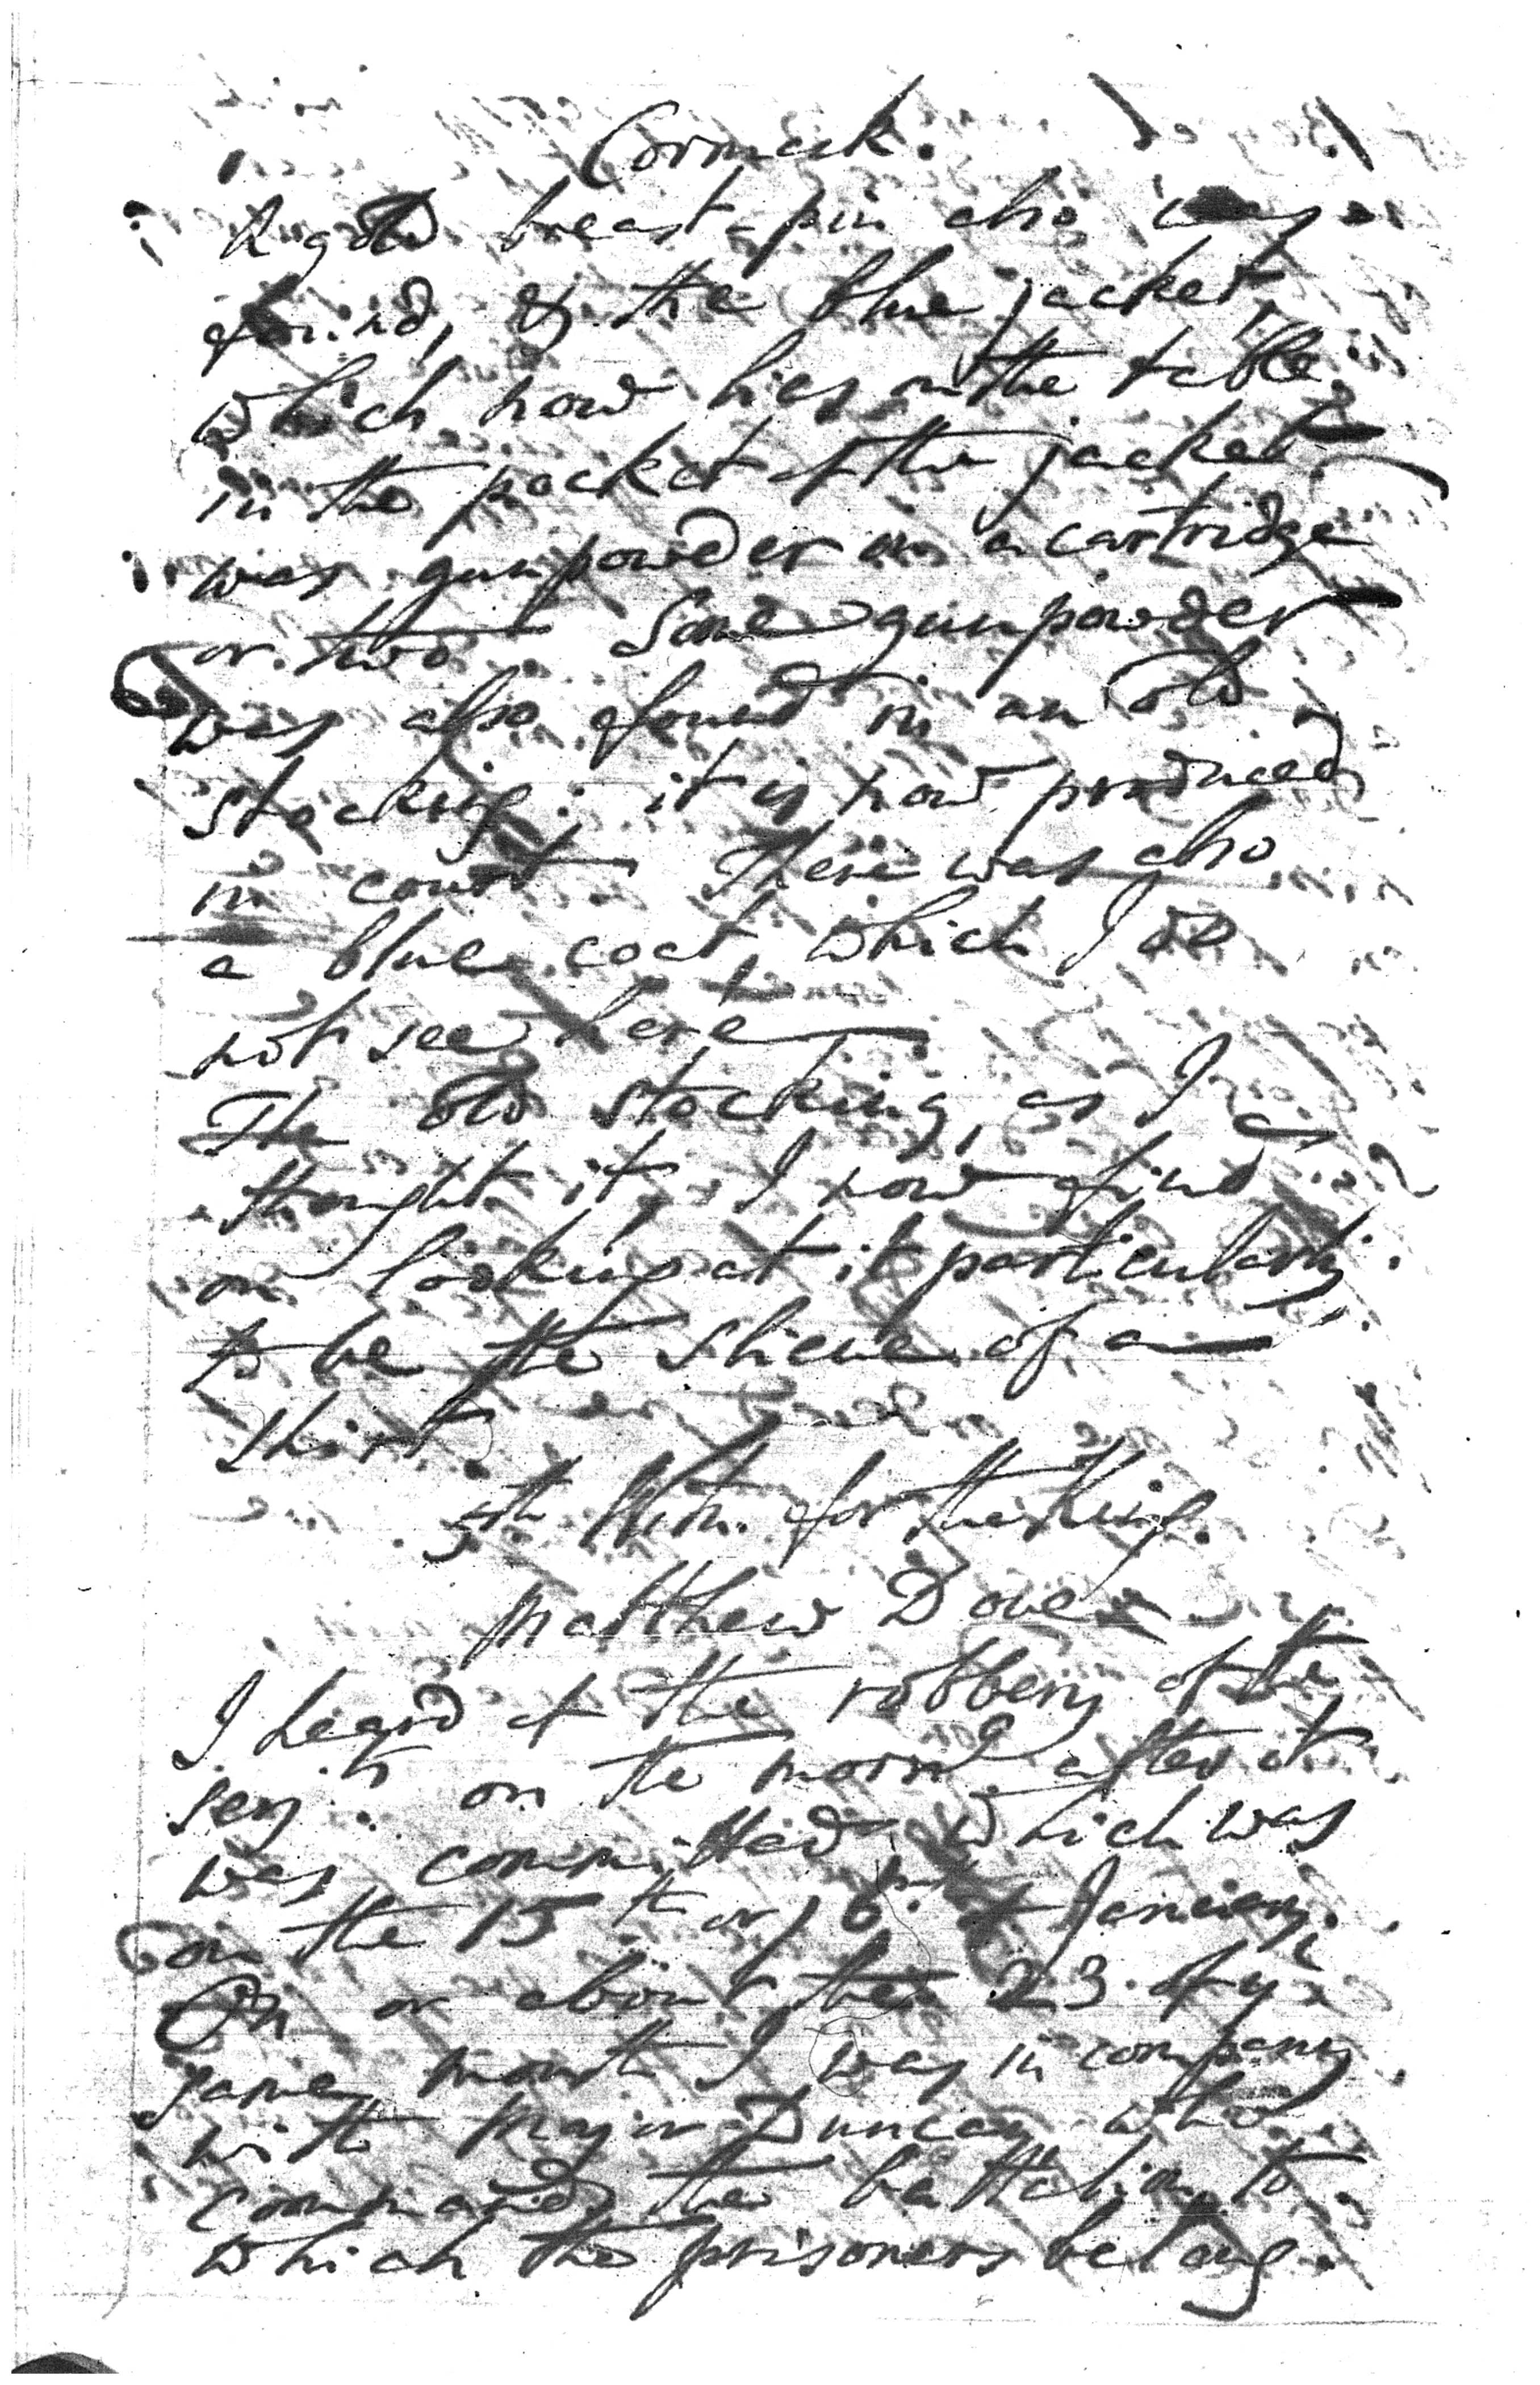 Cormack.
A gold breast-pin also was
found, & the blue jacket,
which now lies on the table.
in the pocket of the jacket
was gunpowder in a cartridge
or two Some gunpowder
was also found in an old
stocking: it is now produced
in court There was also
a blue coat, which I do
not see here
The old stocking, as I
thought it, I now find
on looking at it particularly
to be the slieve of a
shirt.
5th Witn. for the King.
Matthew Dove
I heard of the robbery of the
serjt. on the morng after it
was committed which was
on the 15th or 16th of January.
On or about the 23 of ye
same month I was in company
with Major Duncan who
commands the battalion to
which the prisoners belong.